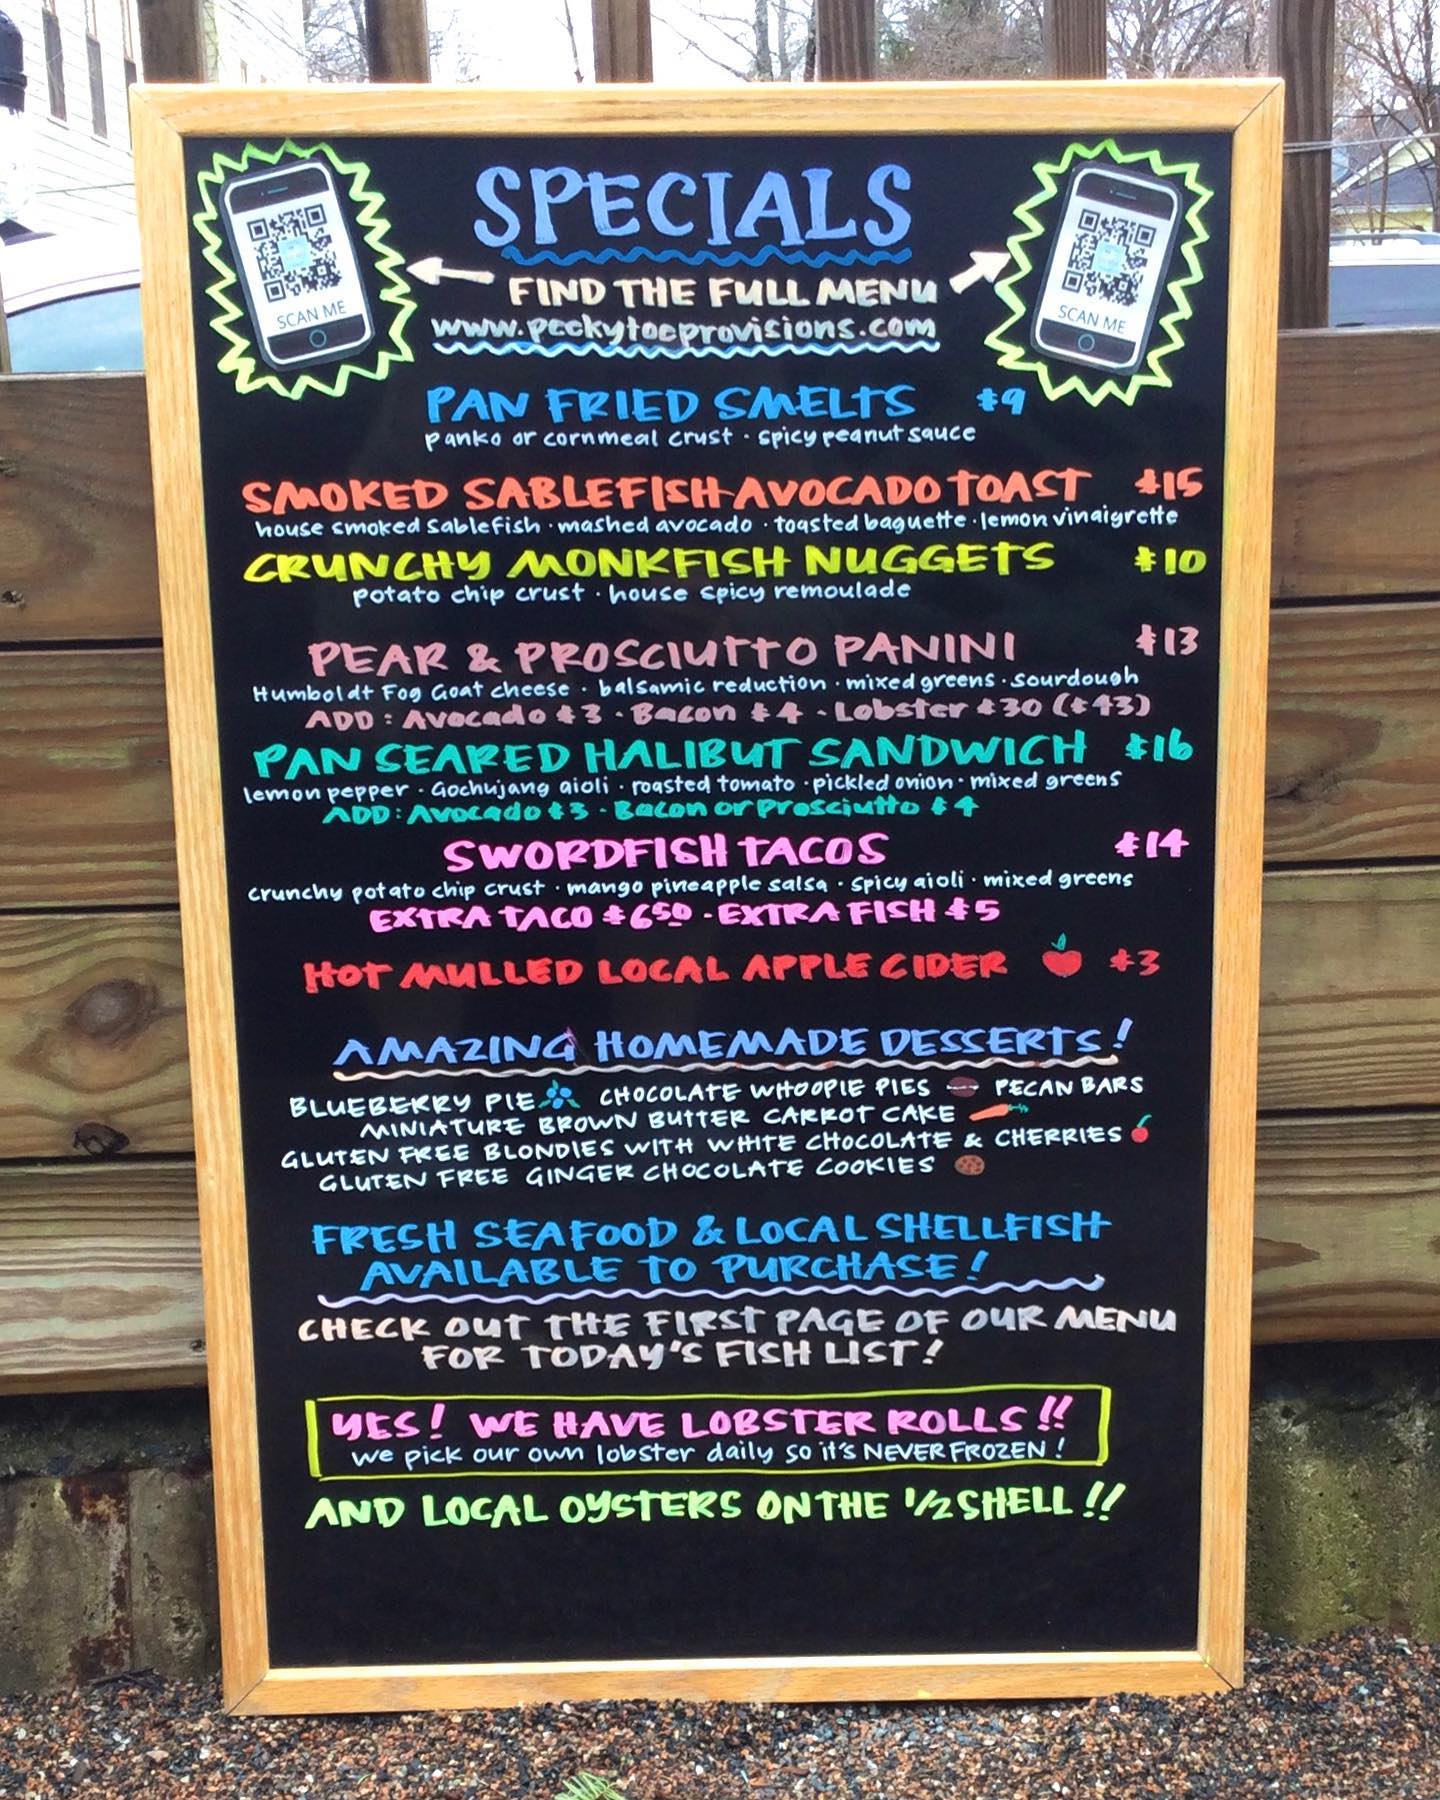 SPECIALS
FIND THE FULL MENU
www.peckytoeprovisions.com
SCAN ME
SCAN ME
PAN FRIED SMELTS $9
panko or cornmeal crust · spicy peanut sauce
SMOKED SABLEFISH AVOCADO TOAST $15
house smoked sablefish · mashed avocado · toasted baguette · lemon vinaigrette
CRUNCHY MONKFISH NUGGETS $10
potato chip crust · house spicy remoulade
PEAR & PROSCIUTTO PANINI $13
Humboldt Fog Goat cheese · balsamic reduction · mixed greens · sourdough
ADD: Avocado $3 · Bacon $4 · Lobster $30 ($43)
PAN SEARED HALIBUT SANDWICH $16
lemon pepper · Gochujang aioli · roasted tomato · pickled onion · mixed greens
ADD: Avocado $3 · Bacon or Prosciutto $4
SWORDFISH TACOS $14
crunchy potato chip crust · mango pineapple salsa · spicy aioli · mixed greens
EXTRA TACO $6.50 · EXTRA FISH $5
HOT MULLED LOCAL APPLE CIDER $3
AMAZING HOMEMADE DESSERTS!
BLUEBERRY PIE CHOCOLATE WHOOPIE PIES PECAN BARS
MINIATURE BROWN BUTTER CARROT CAKE
GLUTEN FREE BLONDIES WITH WHITE CHOCOLATE & CHERRIES
GLUTEN FREE GINGER CHOCOLATE COOKIES
FRESH SEAFOOD & LOCAL SHELLFISH
AVAILABLE TO PURCHASE!
CHECK OUT THE FIRST PAGE OF OUR MENU
FOR TODAY'S FISH LIST!
YES! WE HAVE LOBSTER ROLLS!!
we pick our own lobster daily so it's NEVER FROZEN!
AND LOCAL OYSTERS ON THE 1/2 SHELL!!